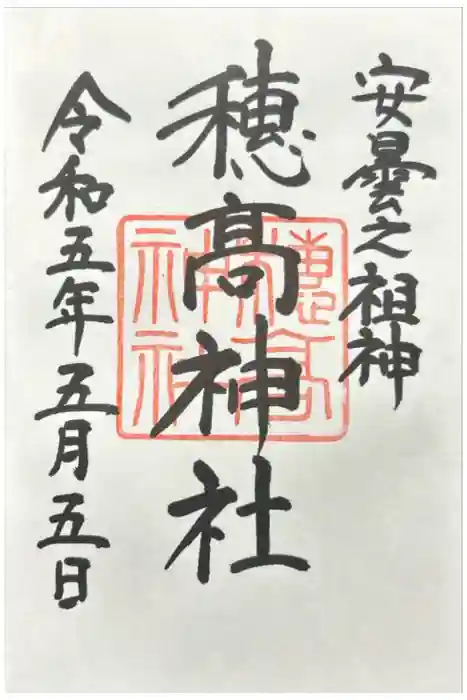 安曇之祖神
穂髙神社
令和五年五月五日
穂高神社